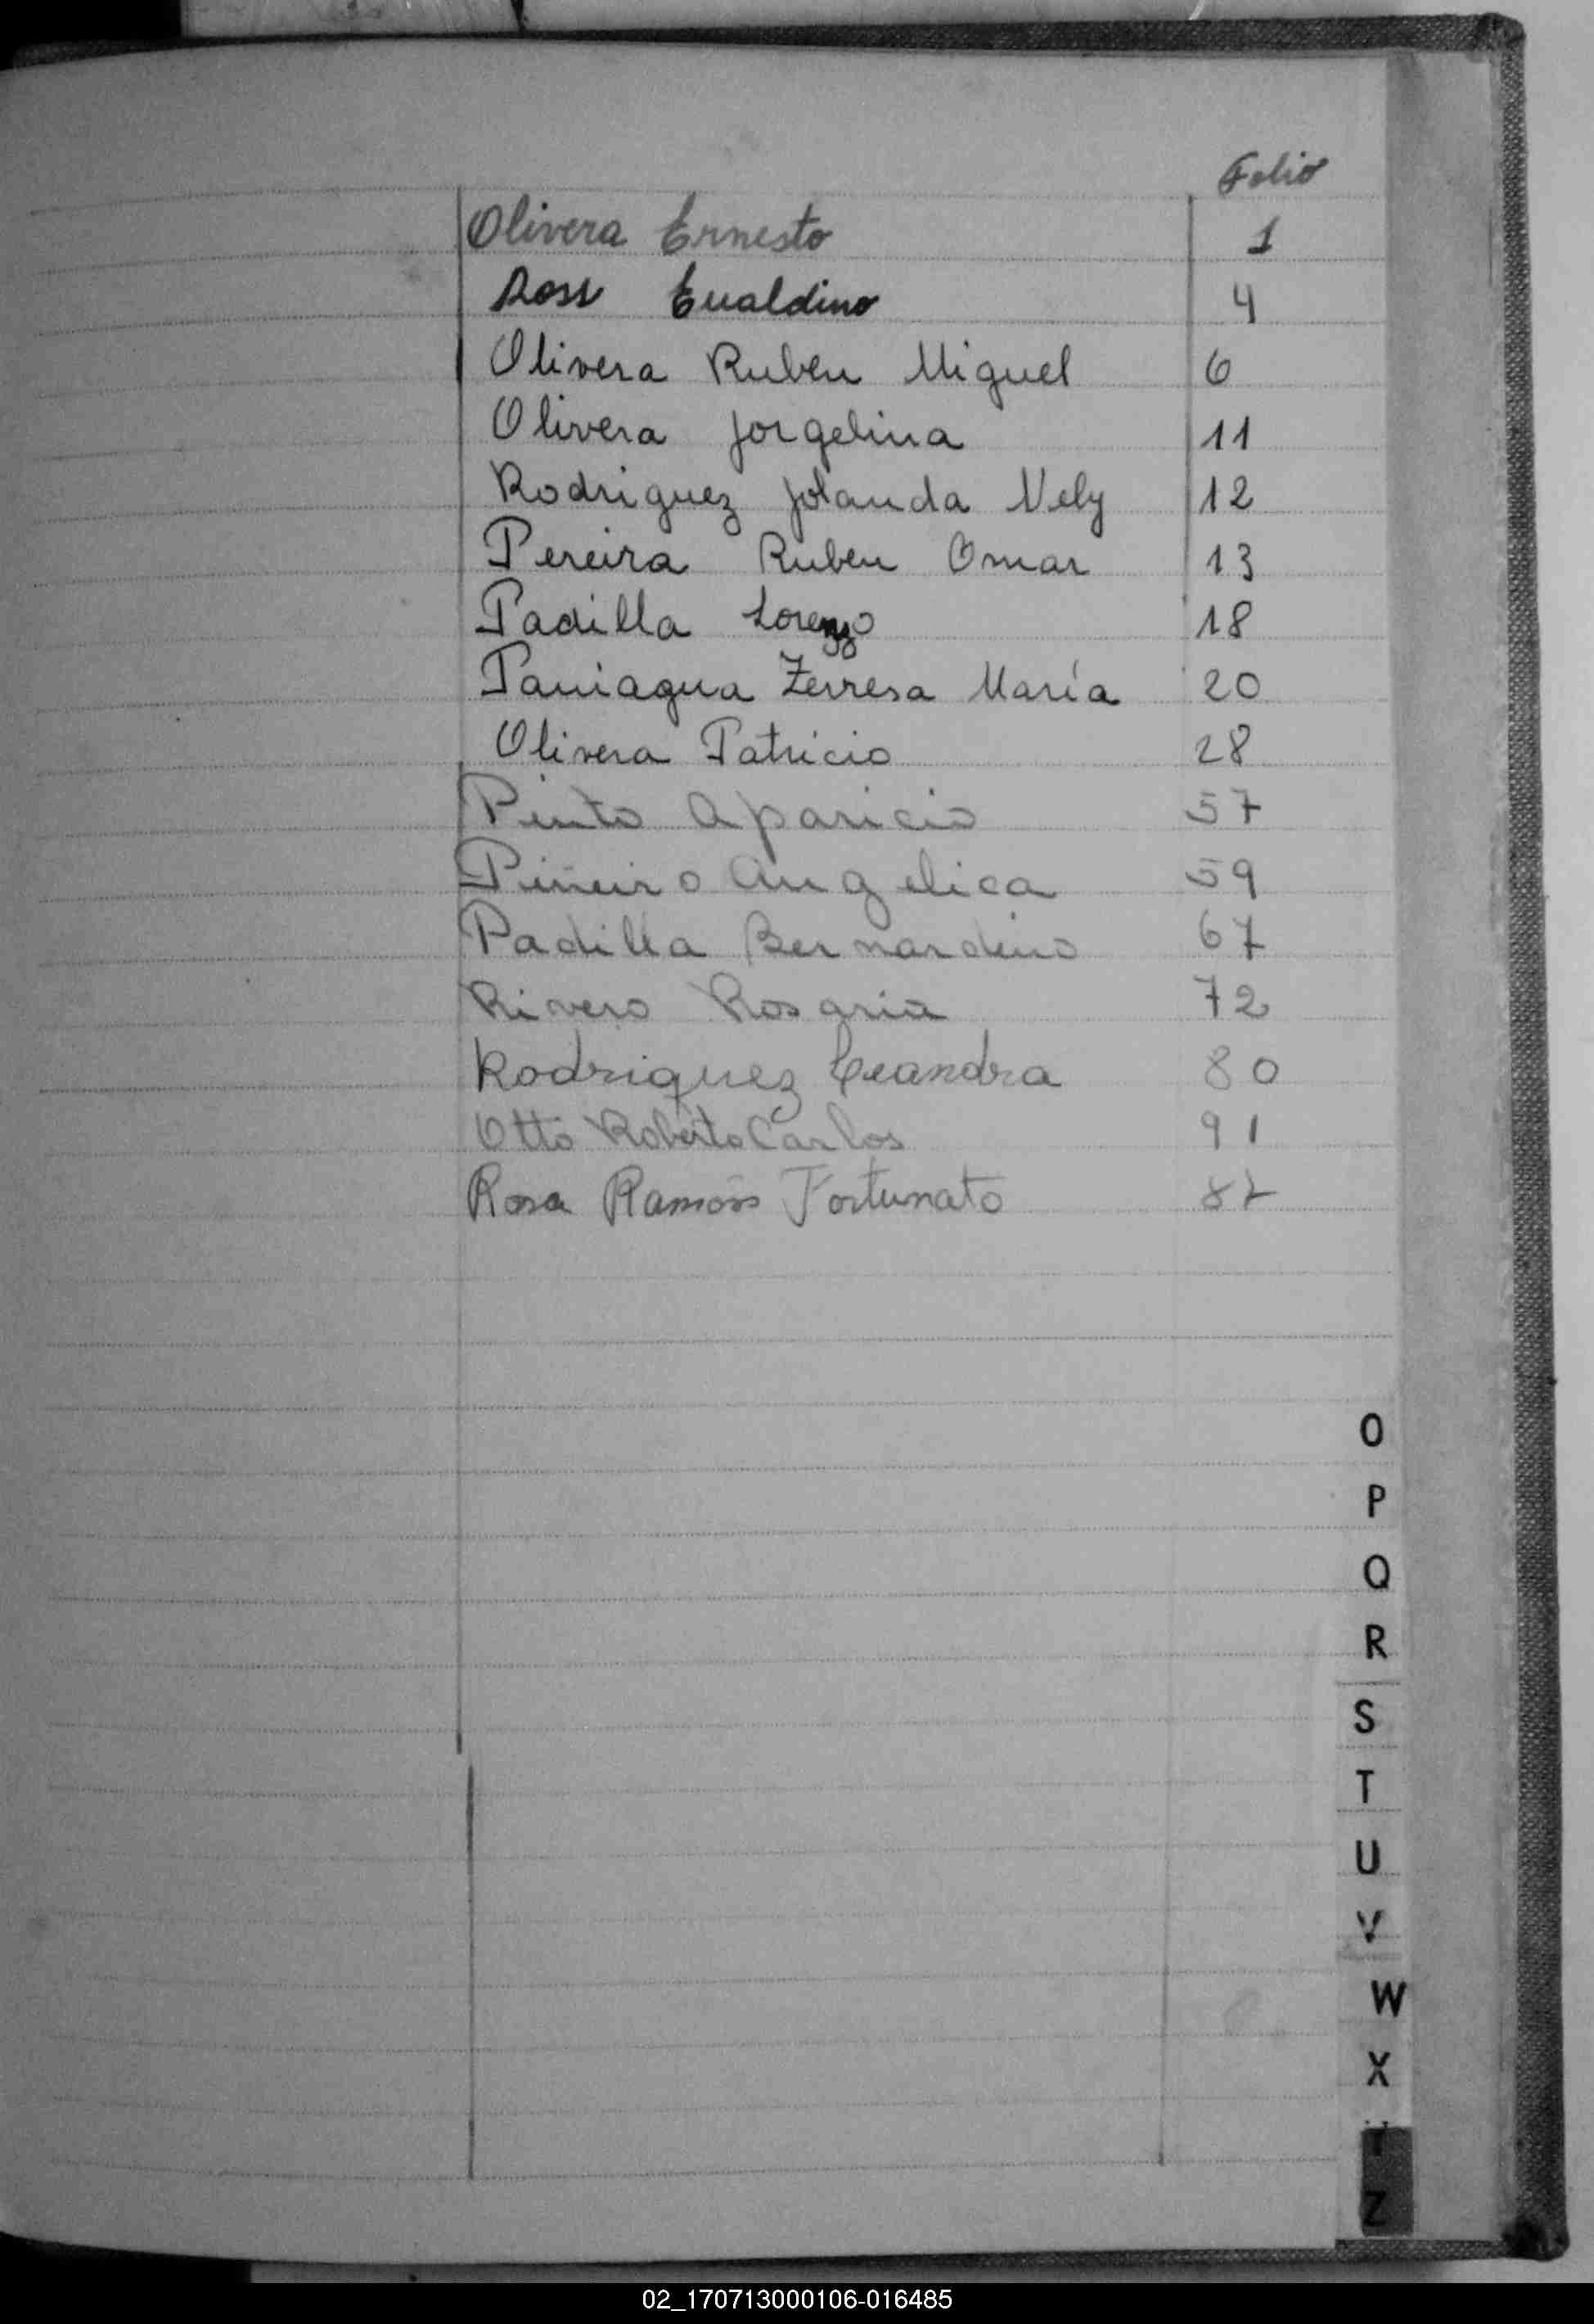 Folio
Olivera Ernesto 1
Rossi Eualdino 4
Olivera Ruben Miguel 6
Olivera Jorgelina 11
Rodriguez Jolanda Nely 12
Pereira Ruben Omar 13
Padilla Lorenzo 18
Paniagua Terresa María 20
Olivera Patricio 28
Pinto Aparicio 57
Piñeiro Angelica 59
Padilla Bernardino 67
Rivero Rosaria 72
Rodriguez Leandra 80
Otto Roberto Carlos 91
Rosa Ramón Fortunato 87
O
P
Q
R
S
T
U
V
W
X
Y
Z
02_170713000106-016485